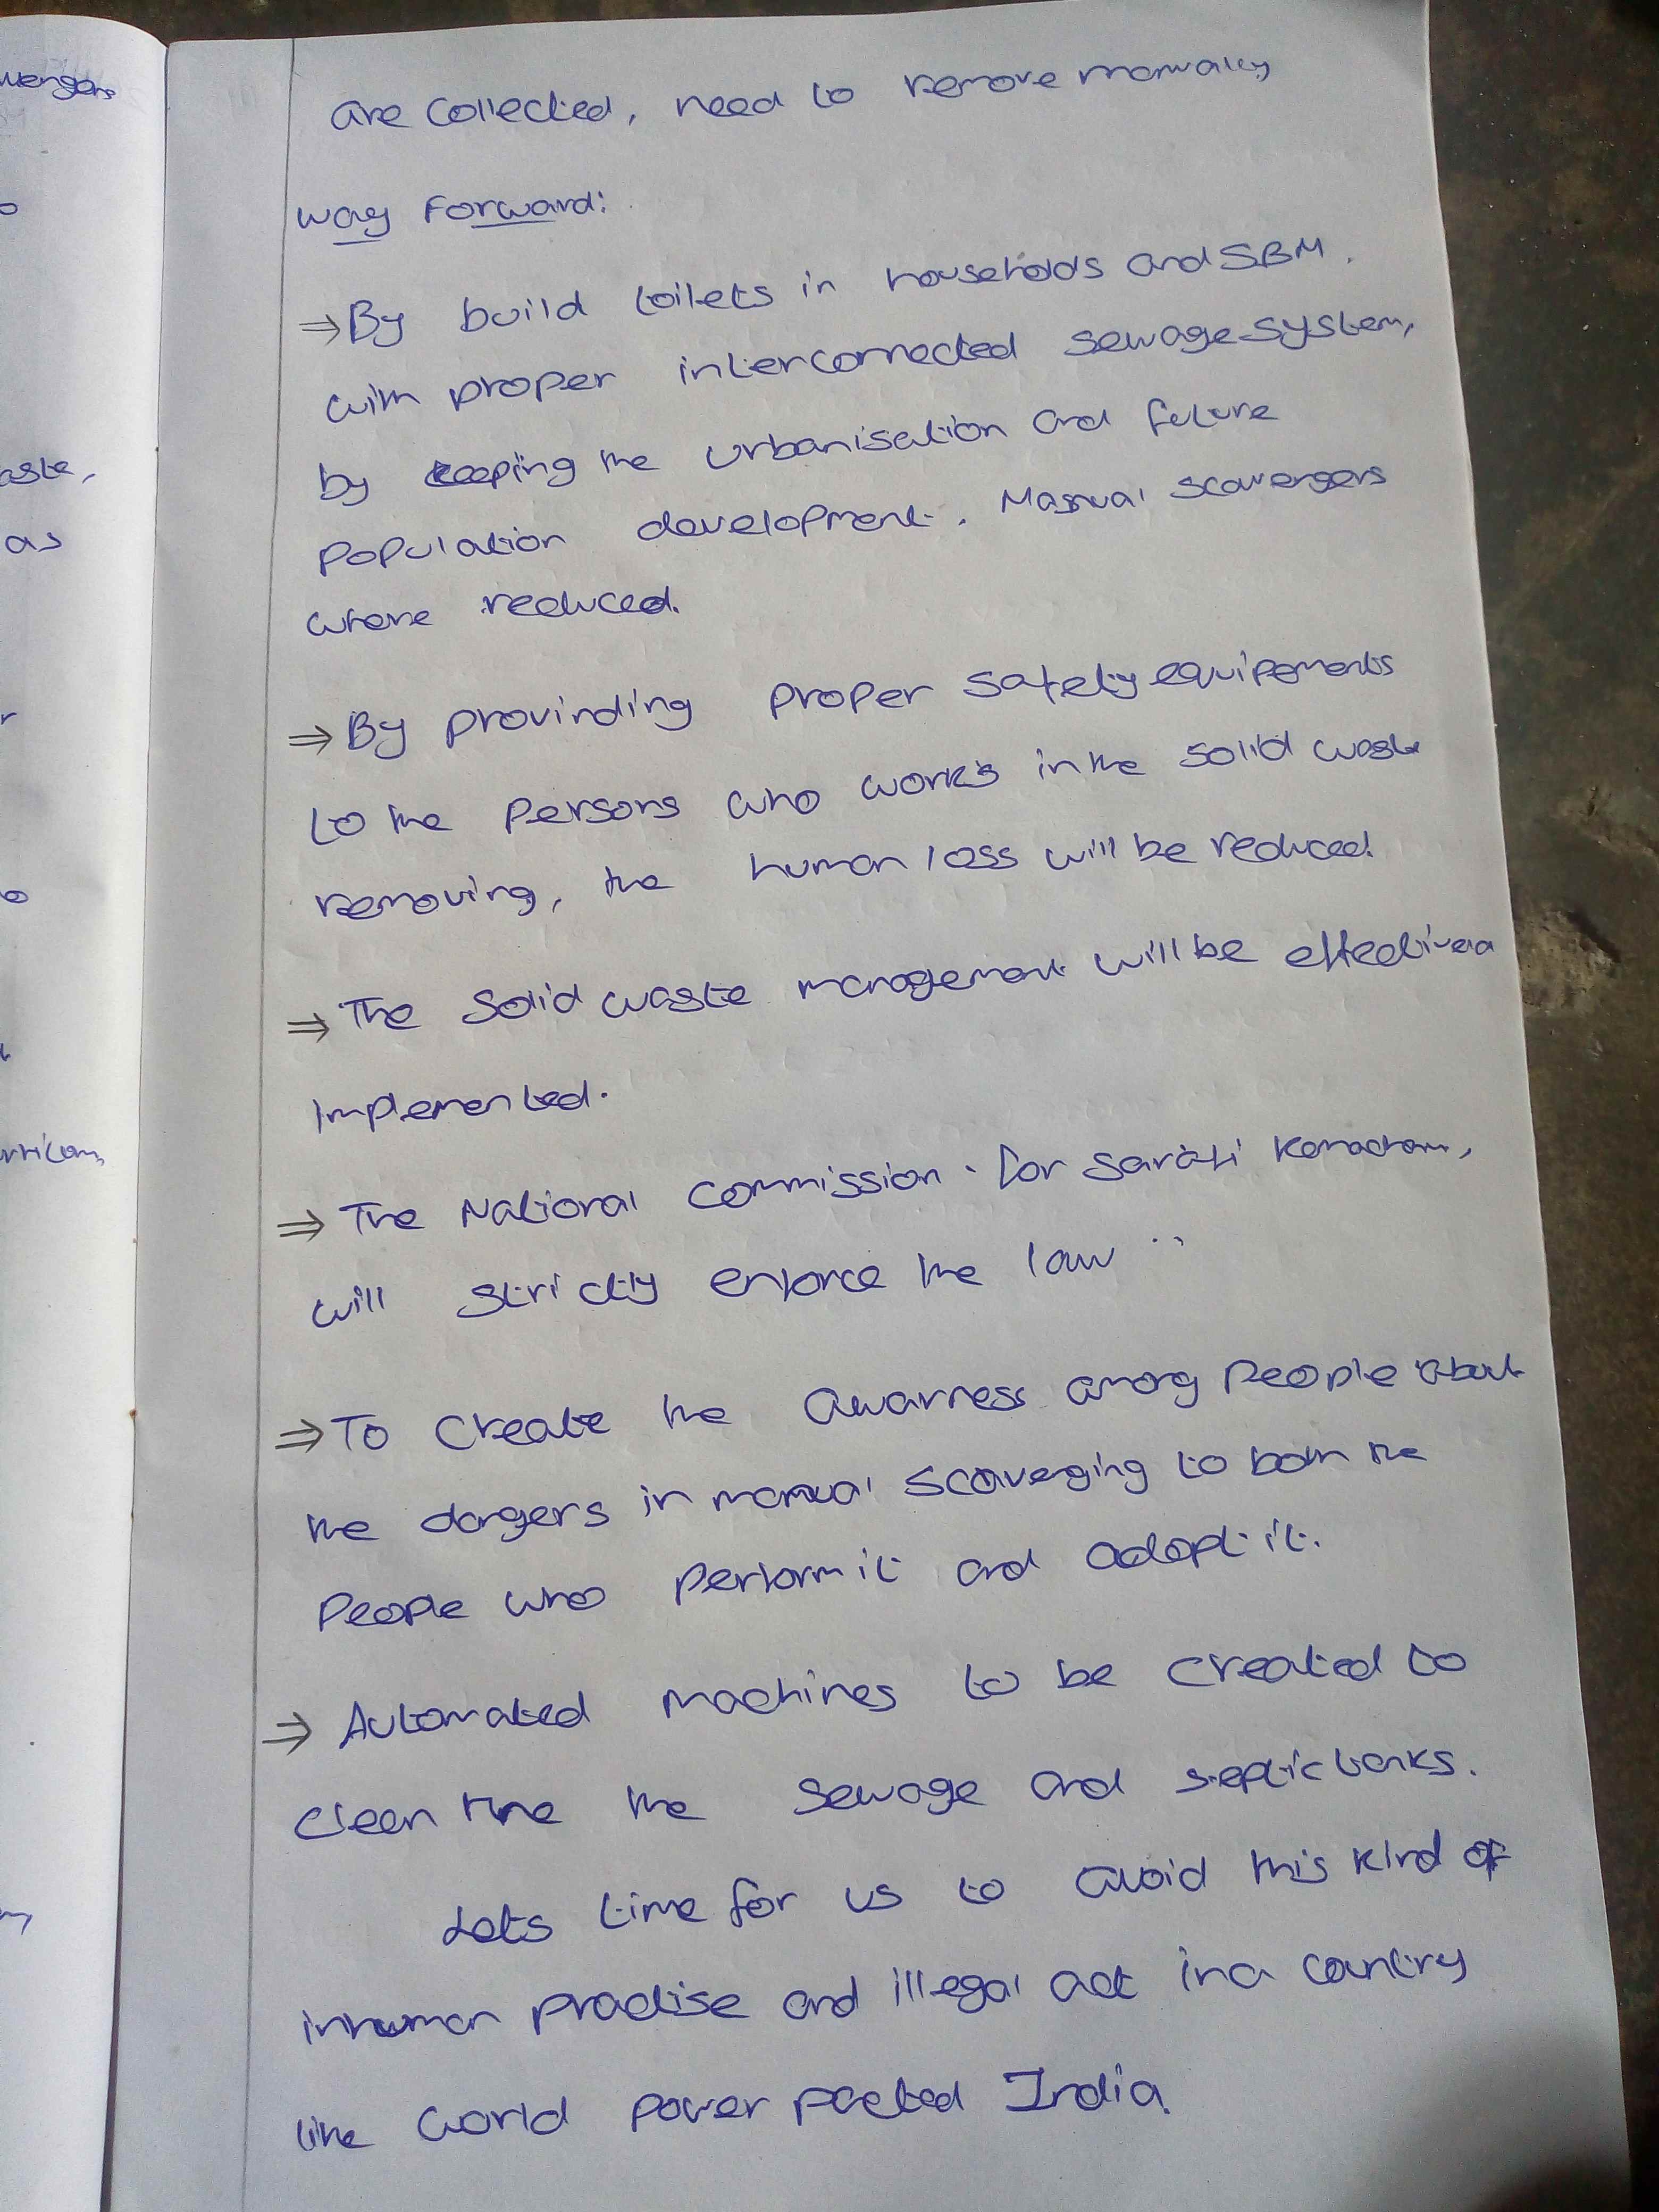 wengers
are collected, need to remove manualey
way forward:
⇒ By build toilets in households and SBM.
with proper interconnected sewage system,
by keeping the urbanisation and future
aste,
population development. Manual scavengers
as
where reduced.
⇒ By provinding proper safety equipements
to the persons who works in the solid waste
removing, the human loss will be reduced.
⇒ The solid waste management will be effectively
implemented.
⇒ The National commission for Sarati Karmacham,
will strictly enforce the law
⇒ To create the awarness among people about
the dangers in manual scavenging to both the
people who perform it and adopt it.
⇒ Automated machines to be created to
clean the the sewage and septic tanks.
Lets time for us to avoid this kind of
inhuman practise and illegal act in a country
like world power packed India.